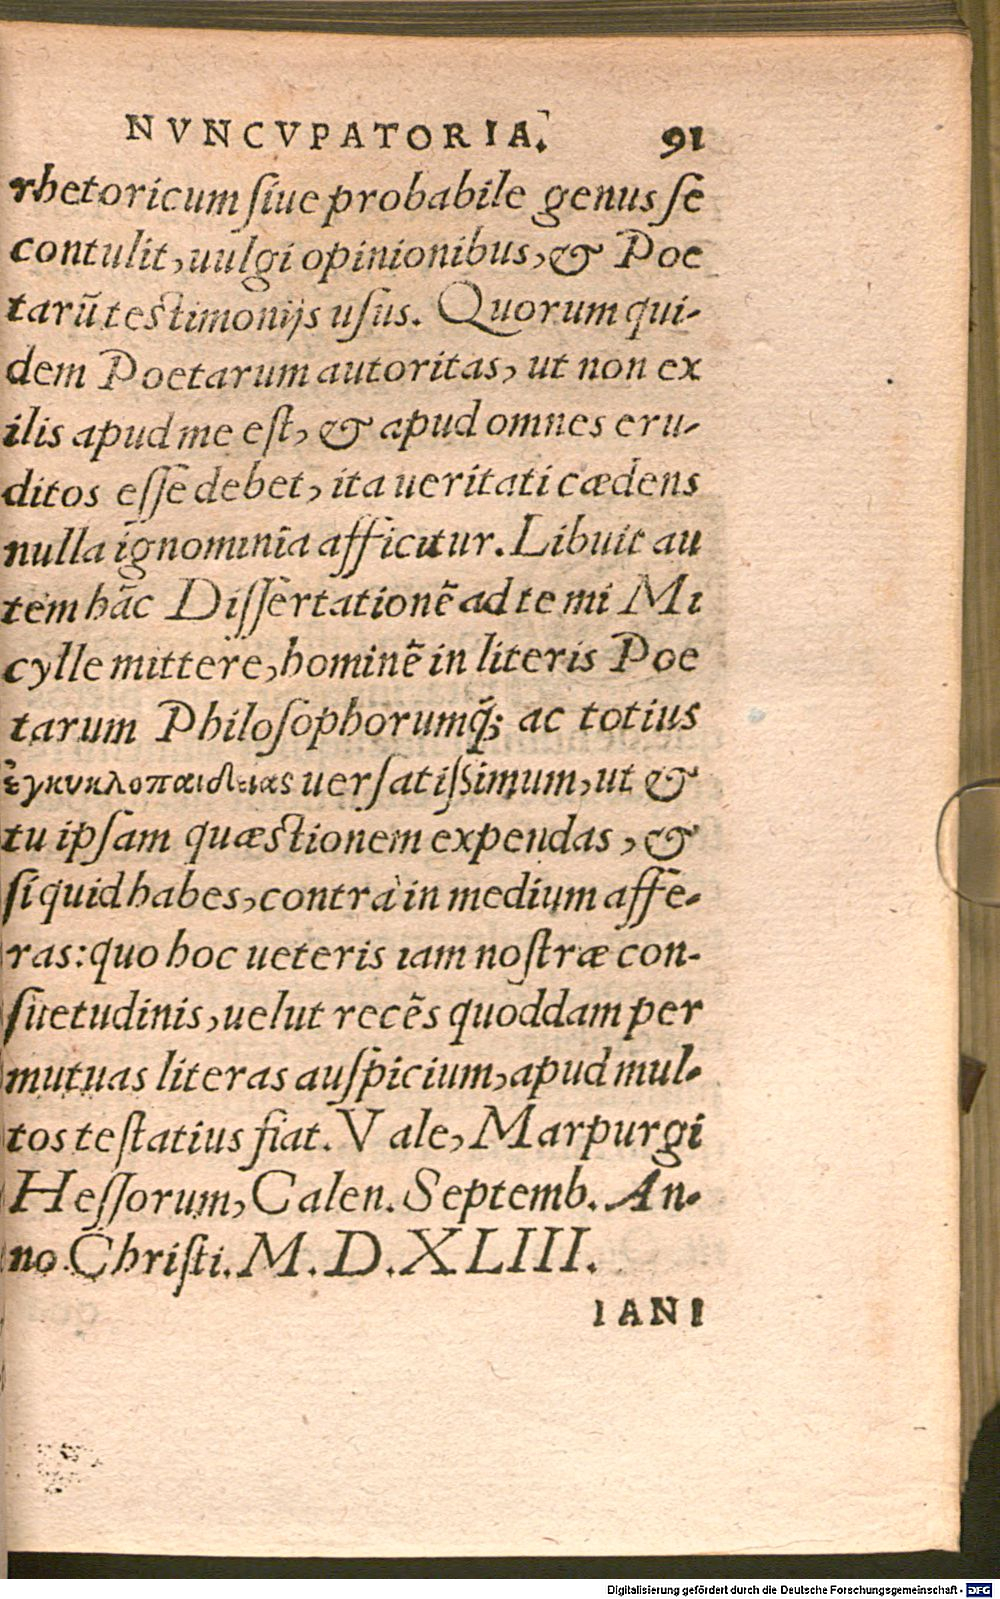 NVNCVPATORIA. 91
rhetoricum ſiue probabile genus ſe
contulit, uulgi opinionibus, & Poe
tarũ teſtimonijs uſus. Quorum qui-
dem Poetarum autoritas, ut non ex
ilis apud me eſt, & apud omnes eru-
ditos eſſe debet, ita ueritati cædens
nulla ignominia afficitur. Libuit au
tem hãc Diſſertationẽ ad te mi Mi
cylle mittere, hominẽ in literis Poe
tarum Philoſophorumq́; ac totius
ἐγκυκλοπαιδείας uerſatiſſimum, ut &
tu ipſam quæſtionem expendas, &
ſi quid habes, contrà in medium affe-
ras: quo hoc ueteris iam noſtræ con-
ſuetudinis, uelut recẽs quoddam per
mutuas literas auſpicium, apud mul-
tos teſtatius fiat. Vale, Marpurgi
Heſſorum, Calen. Septemb. An-
no Chriſti. M. D. XLIII.
IANI
Digitalisierung gefördert durch die Deutsche Forschungsgemeinschaft - DFG